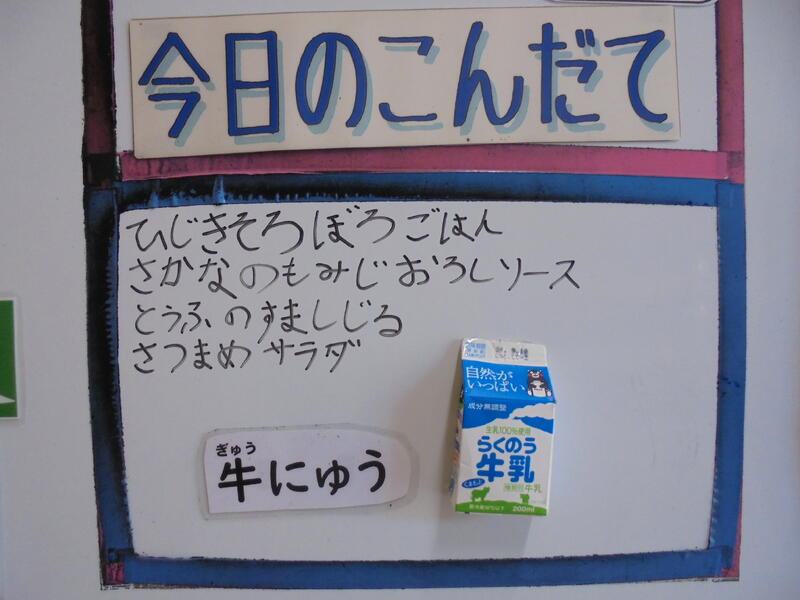 今日のこんだて
ひじきそろぼろごはん
さかなのもみじおろしソース
とうふのすましじる
さつまめサラダ
ぎゅう
牛にゅう
自然が
いっぱい
成分無調整
生乳100%使用
らくのう
牛乳
牛乳
200ml